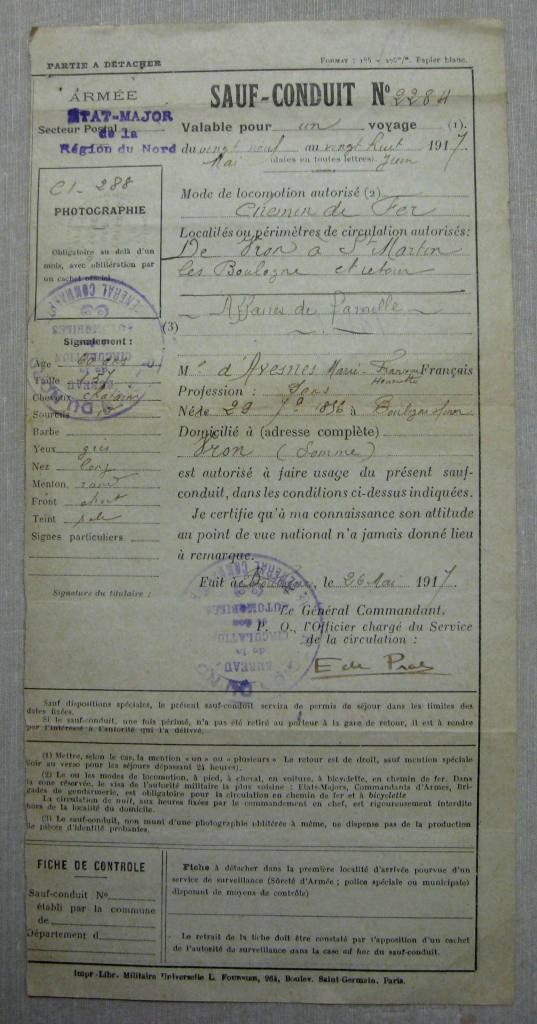 PARTIE A DÉTACHER
FORMAT : 135 × 275 m/m. Papier blanc.
ARMÉE
ÉTAT-MAJOR
Secteur Postal
de la
Région du Nord
C1 - 288
PHOTOGRAPHIE
Obligatoire au delà d'un
mois, avec oblitération par
un cachet officiel.
SAUF-CONDUIT N° 2284
Valable pour un voyage (1).
du vingt neuf au vingt huit 1917
Mai (dates en toutes lettres). Juin
Mode de locomotion autorisé (2)
Chemin de Fer
Localités ou périmètres de circulation autorisés:
De Vron a St Martin
les Boulogne et retour
Affaires de Famille
(3)
Signalement :
Age
Taille
Cheveux
Sourcils
Barbe
Yeux gris
Nez long
Menton rond
Front
Teint pale
Signes particuliers
Signature du titulaire :
M d'Avesnes Marie Français
Henriette
Profession :
Née le 29 856 à Boulogne
Domicilié à (adresse complète)
Vron (Somme)
est autorisé à faire usage du présent sauf-
conduit, dans les conditions ci-dessus indiquées.
Je certifie qu'à ma connaissance son attitude
au point de vue national n'a jamais donné lieu
à remarque.
Fait à Boulogne, le 26 Mai 1917.
Le Général Commandant.
P. O., l'Officier chargé du Service
de la circulation :
Sauf dispositions spéciales, le présent sauf-conduit servira de permis de séjour dans les limites des
dates fixées.
Si le sauf-conduit, une fois périmé, n'a pas été retiré au porteur à la gare de retour, il est à rendre
par l'intéressé à l'autorité qui l'a délivré.
(1) Mettre, selon le cas, la mention « un » ou « plusieurs » Le retour est de droit, sauf mention spéciale
Voir au verso pour les séjours dépassant 24 heures).
(2) Le ou les modes de locomotion, à pied, à cheval, en voiture, à bicyclette, en chemin de fer. Dans
la zone réservée, le visa de l'autorité militaire la plus voisine : Etat-Majors, Commandants d'Armes, Bri-
gades de gendarmerie, est obligatoire pour la circulation en chemin de fer et à bicyclette
La circulation de nuit, aux heures fixées par le commandement en chef, est rigoureusement interdite
hors de la localité du domicile.
(3) Le sauf-conduit, non muni d'une photographie oblitérée à même, ne dispense pas de la production
de pièces d'identité probantes.
FICHE DE CONTROLE
Sauf-conduit N°
établi par la commune
de
Département d
Fiche à détacher dans la première localité d'arrivée pourvue d'un
service de surveillance (Sûreté d'Armée ; police spéciale ou municipale)
disposant de moyens de contrôle)
Le retrait de la fiche doit être constaté par l'apposition d'un cachet
de l'autorité de surveillance dans la case ad hoc du sauf-conduit.
Impr.-Libr. Militaire Universelle L. FOURNIER, 264, Boulev. Saint-Germain, Paris.